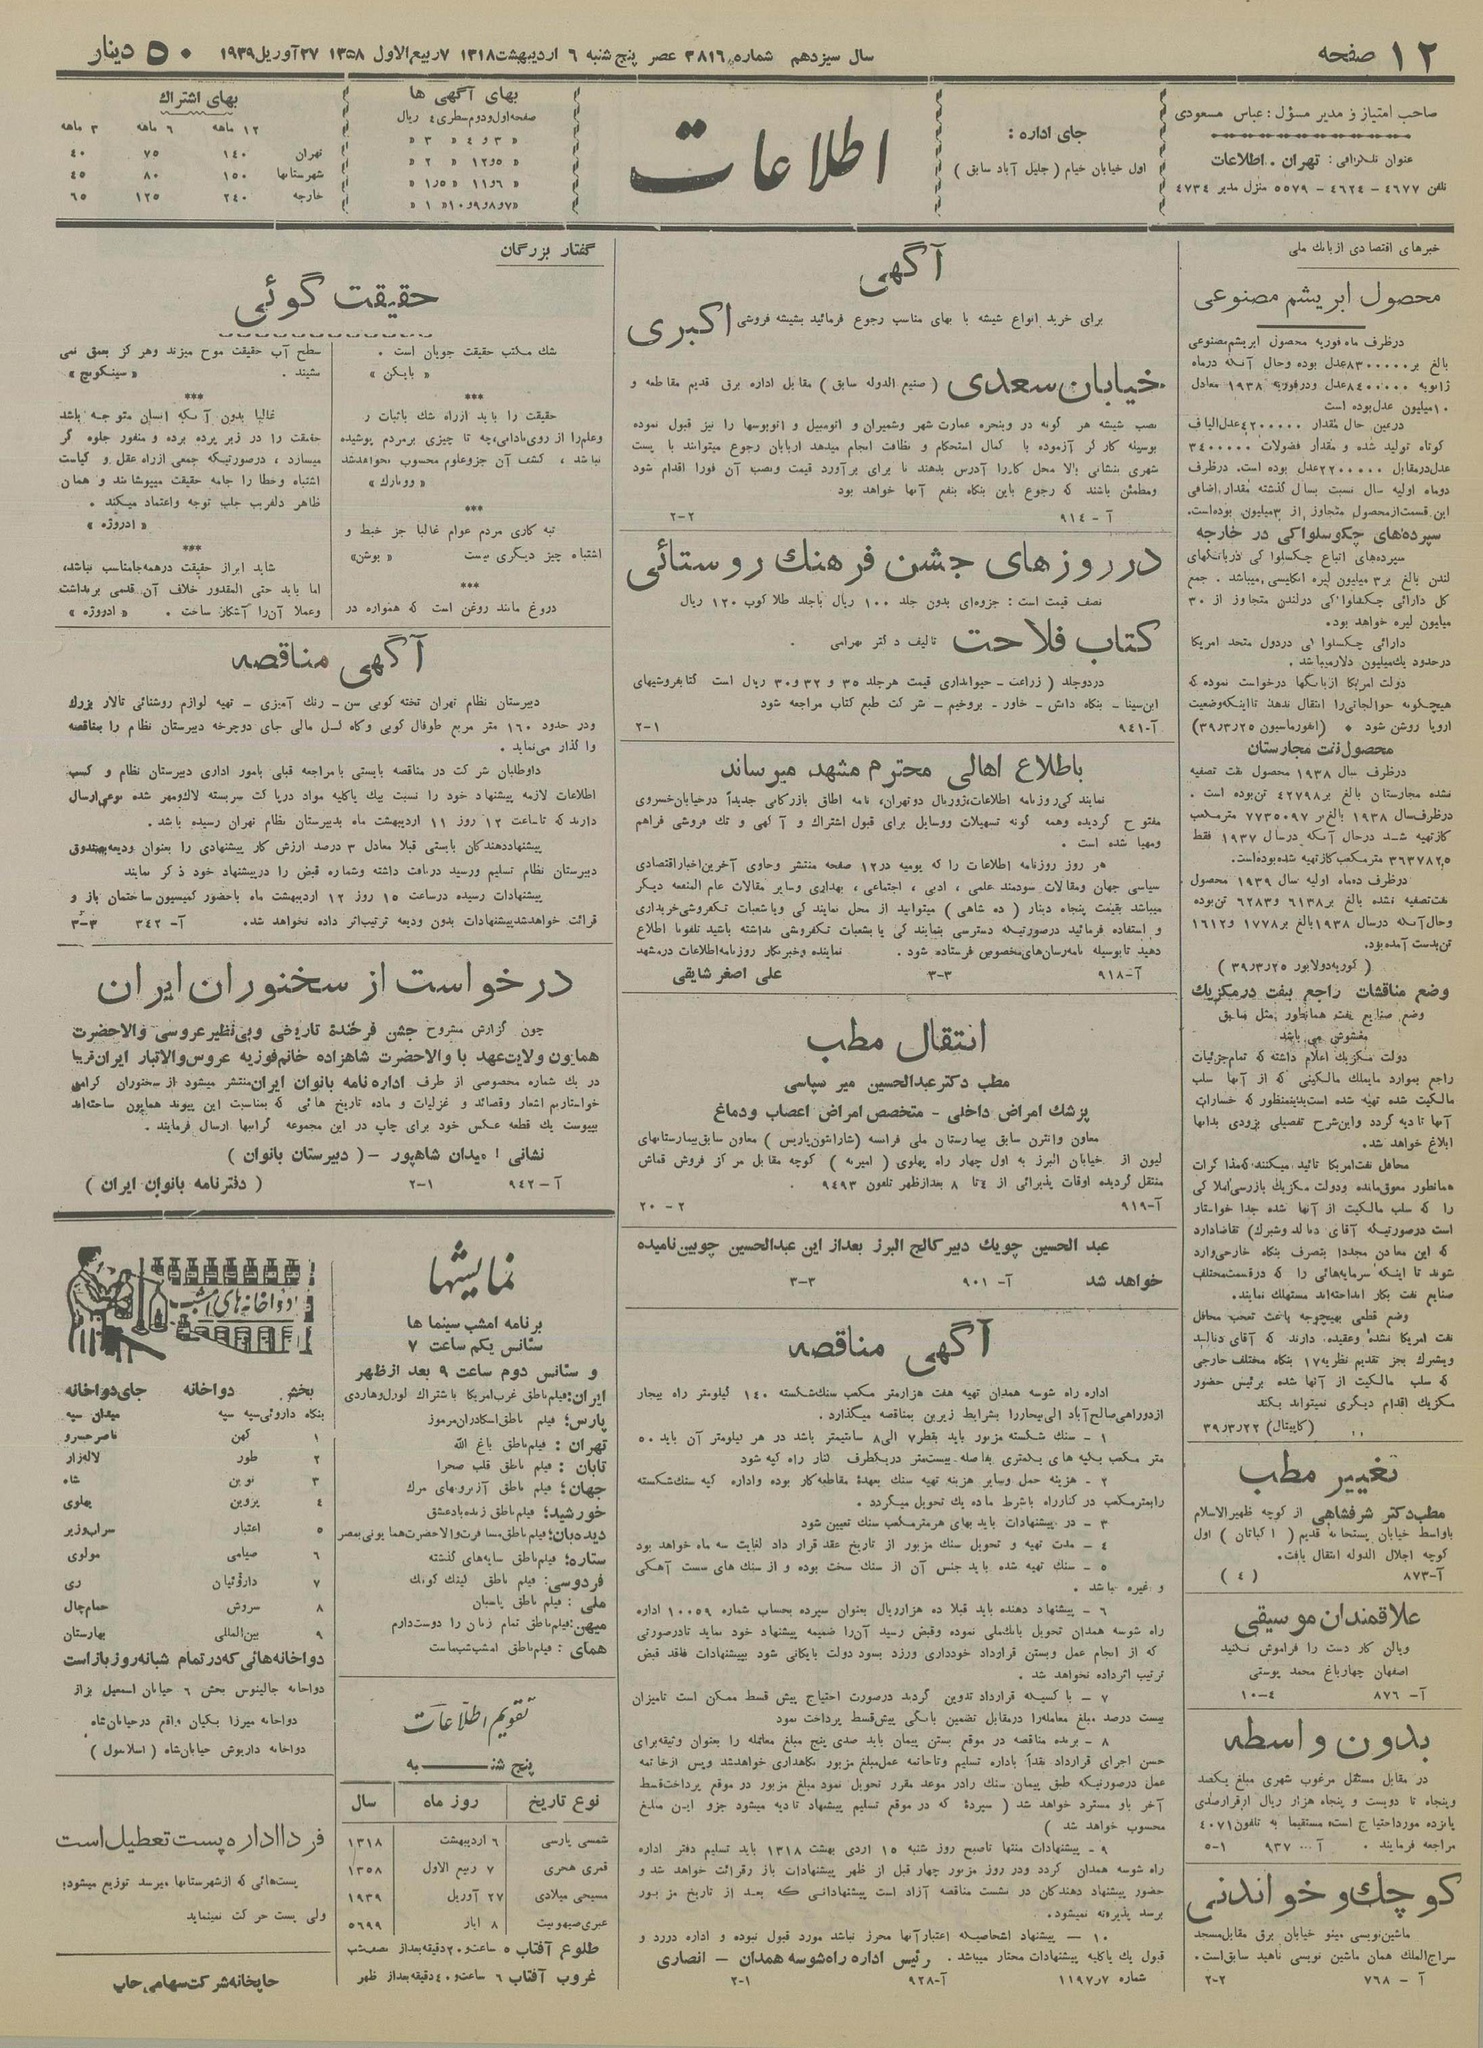 ۱۲ صفحه
سال سیزدهم شماره ۳۸۱۶ عصر پنج شنبه ۶ اردیبهشت ۱۳۱۸ ۷ ربیع الاول ۱۳۵۸ ۲۷ آوریل ۱۹۳۹
۵۰ دینار
صاحب امتیاز و مدیر مسؤل : عباس مسعودی
عنوان تلگرافی : تهران . اطلاعات
تلفن ۴۶۷۷ - ۴۶۲۴ - ۵۵۷۹ منزل مدیر ۴۷۳۴
جای اداره :
اول خیابان خیام ( جلیل آباد سابق )
اطلاعات
بهای آگهی ها
صفحه اول و دوم سطری ٤ ریال
« ۳ و ٤ « ۳ «
« ۵ و ۱۲ « ۲ «
« ۶ و ۱۱ « ۱٫۵ «
« ۷ و ۸ و ۹ و ۱۰ « ۱ «
بهای اشتراك
۱۲ ماهه ۶ ماهه ۳ ماهه
تهران ۱۴۰ ۷۵ ۴۰
شهرستانها ۱۵۰ ۸۰ ۴۵
خارجه ۲۴۰ ۱۲۵ ۶۵
خبرهای اقتصادی از بانك ملی
محصول ابریشم مصنوعی
درظرف ماه فوریه محصول ابریشم مصنوعی
بالغ بر ۸۳۰۰۰۰۰ عدل بوده وحال آنکه درماه
ژانویه ۸۴۰۰۰۰۰ عدل ودرفوریه ۱۹۳۸ معادل
۱۰ میلیون عدل بوده است
درعین حال مقدار ۴۲۰۰۰۰۰ عدل الیاف
کوتاه تولید شده و مقدار فضولات ۳۴۰۰۰۰
عدل درمقابل ۲۲۰۰۰۰ عدل بوده است. درظرف
دوماه اولیه سال نسبت بسال گذشته مقدار اضافی
این قسمت از محصول متجاوز از ۳ میلیون بوده است.
سپرده های چکوسلواکی در خارجه
سپرده های اتباع چکسلوا کی در بانکهای
لندن بالغ بر ۳ میلیون لیره انگلیسی میباشد . جمع
کل دارائی چکسلوا کی در لندن متجاوز از ۳۰
میلیون لیره خواهد بود.
دارائی چکسلوا کی دردول متحد امریکا
درحدود یك میلیون دلار میباشد .
دولت امریکا از بانکها درخواست نموده که
هیچگونه حوالجاتی را انتقال ندهند تا اینکه وضعیت
اروپا روشن شود • (انفورماسیون ۳۹٫۳٫۲۵)
محصول نفت مجارستان
درظرف سال ۱۹۳۸ محصول نفت تصفیه
نشده مجارستان بالغ بر ۴۲۷۹۸ تن بوده است .
درظرف سال ۱۹۳۸ بالغ بر ۷۷۳۵۰۹۷ مترمکعب
گاز تهیه شد درحال آنکه درسال ۱۹۳۷ فقط
۳۶۳۷۸۲٫۵ مترمکعب گاز تهیه شده بوده است.
درظرف دو ماه اولیه سال ۱۹۳۹ محصول
نفت تصفیه نشده بالغ بر ۶۱۳۸ و ۶۲۸۳ تن بوده
وحال آنکه درسال ۱۹۳۸ بالغ بر ۱۷۷۸ و ۱۶۱۲
تن بدست آمده بود.
( کوریه دولابور ۳۹٫۳٫۲۵ )
وضع مناقشات راجع بنفت در مکزیك
وضع صنایع نفت همانطور مثل سابق
مغشوش می باشد
دولت مکزیك اعلام داشته که تمام جزئیات
راجع بموارد مایملك مالکینی که از آنها سلب
مالکیت شده تهیه شده است بدینمنظور که خسارات
آنها تادیه گردد واین شرح تفصیلی بزودی بدانها
ابلاغ خواهد شد.
محافل نفت امریکا تائید میکنند که مذاکرات
همانطور معوق مانده ودولت مکزیك بازرسی املاکی
را که سلب مالکیت از آنها شده جدا خواستار
است درصورتیکه آقای دنالد وشبرك) تقاضا دارد
که این معادن مجددا بتصرف بنگاه خارجی وارد
شوند تا اینکه سرمایه هائی را که درقسمت مختلف
صنایع نفت بکار انداخته اند مستهلك نمایند.
وضع قطعی بهیچوجه باعث تعجب محافل
نفت امریکا نشده وعقیده دارند که آقای دنالد
ویشبرك بجز تقدیم نظریه ۱۷ بنگاه مختلف خارجی
که سلب مالکیت از آنها شده برئیس حضور
مکزیك اقدام دیگری نمیتواند بکند
(کاپیتال) ۳۹٫۳٫۲۲
تغییر مطب
مطب دکتر شرفشاهی از کوچه ظهیرالاسلام
باواسط خیابان پستخانه قدیم ( اکباتان ) اول
کوچه اجلال الدوله انتقال یافت.
آ-۸۷۳ (٤)
علاقمندان موسیقی
ویالن کار دست را فراموش نکنید
اصفهان چهارباغ محمد یوستی
آ- ۸۷۶ ٤-۱۰
بدون واسطه
در مقابل مستغل مرغوب شهری مبلغ یکصد
وپنجاه تا دویست و پنجاه هزار ریال از قرار صدی
پانزده مورد احتیاج است، مستقیما به تلفون ۴۰۷۱
مراجعه فرمایند . آ- ۹۳۷ ۱-۵
کوچك و خواندنی
ماشین نویسی مینو خیابان برق مقابل مسجد
سراج الملك همان ماشین نویسی ناهید سابق است.
آ - ۷۶۸ ۲-۲
آگهی
برای خرید انواع شیشه با بهای مناسب رجوع فرمائید بشیشه فروشی اکبری
خیابان سعدی ( صنیع الدوله سابق ) مقابل اداره برق قدیم مقاطعه و
نصب شیشه هر گونه در وپنجره عمارت شهر وشمیران و اتومبیل و اتوبوسها را نیز قبول نموده
بوسیله کار گر آزموده با کمال استحکام و نظافت انجام میدهد اربابان رجوع میتوانند با پست
شهری بنشانی بالا محل کار را آدرس بدهند تا برای برآورد قیمت ونصب آن فورا اقدام شود
ومطمئن باشند که رجوع باین بنگاه بنفع آنها خواهد بود
آ - ۹۱۴ ۲-۲
در روزهای جشن فرهنك روستائی
نصف قیمت است : جزوه ای بدون جلد ۱۰۰ ریال باجلد طلا کوب ۱۲۰ ریال
کتاب فلاحت تالیف دکتر بهرامی .
دردوجلد ( زراعت - حیوانداری قیمت هرجلد ۳۵ و ۳۲ و ۳۰ ریال است کتابفروشیهای
ابن سینا - بنگاه دانش - خاور - بروخیم - شرکت طبع کتاب مراجعه شود
آ-۹۴۱ ۱-۲
باطلاع اهالی محترم مشهد میرساند
نمایندگی روزنامه اطلاعات، ژورنال دوتهران، نامه اطاق بازرگانی جدیداً درخیابان خسروی
مفتوح گردیده وهمه گونه تسهیلات ووسایل برای قبول اشتراك و آگهی و تك فروشی فراهم
ومهیا شده است .
هر روز روزنامه اطلاعات را که یومیه در ۱۲ صفحه منتشر وحاوی آخرین اخبار اقتصادی
سیاسی جهان ومقالات سودمند علمی ، ادبی ، اجتماعی ، بهداری وسایر مقالات عام المنفعه دیگر
میباشد بقیمت پنجاه دینار ( ده شاهی ) میتوانید از محل نمایندگی ویا شعبات تکفروشی خریداری
و استفاده فرمائید درصورتیکه دسترسی بنمایندگی یا بشعبات تکفروشی نداشته باشید تلفونا اطلاع
دهید تا بوسیله نامه رسان های مخصوص فرستاده شود . نماینده وخبرنگار روزنامه اطلاعات در مشهد
آ-۹۱۸ ۳-۳ علی اصغر شایقی
انتقال مطب
مطب دکتر عبدالحسین میر سپاسی
پزشك امراض داخلی - متخصص امراض اعصاب ودماغ
معاون وانترن سابق بیمارستان ملی فرانسه (شارانتون پاریس ) معاون سابق بیمارستانهای
لیون از خیابان البرز به اول چهار راه پهلوی ( امیریه ) کوچه مقابل مرکز فروش قماش
منتقل گردیده اوقات پذیرائی از ٤ تا ۸ بعدازظهر تلفون ۹۴۹۳ .
آ-۹۱۹ ۲ - ۲۰
عبد الحسین چوبك دبیر کالج البرز بعداز این عبدالحسین چوبین نامیده
خواهد شد آ- ۹۰۱ ۳-۳
آگهی مناقصه
اداره راه شوسه همدان تهیه هفت هزار متر مکعب سنك شکسته ۱۴۰ کیلومتر راه بیجار
از دوراهی صالح آباد الی بیجار را بشرایط زیرین بمناقصه میگذارد.
۱ - سنك شکسته مزبور باید بقطر ۷ الی ۸ سانتیمتر باشد در هر کیلومتر آن باید ۵۰
متر مکعب بکپه های یکمتری بفاصله بیست متر دریکطرف کنار راه کپه شود
۲ - هزینه حمل وسایر هزینه تهیه سنك بعهدۀ مقاطعه کار بوده واداره کپه سنك شکسته
را بمترمکعب در کنار راه باشرط ماده یك تحویل میگردد .
۳ - در پیشنهادات باید بهای هرمترمکعب سنك تعیین شود
٤ - مدت تهیه و تحویل سنك مزبور از تاریخ عقد قرار داد لغایت سه ماه خواهد بود
۵ - سنك تهیه شده باید جنس آن از سنك سخت بوده و از سنك های سست آهکی
و غیره نباشد .
۶ - پیشنهاد دهنده باید قبلا ده هزار ریال بعنوان سپرده بحساب شماره ۱۰۰۵۹ اداره
راه شوسه همدان تحویل بانك ملی نموده وقبض رسید آن را ضمیمه پیشنهاد خود نماید تا درصورتی
که از انجام عمل وبستن قرارداد خودداری ورزد بسود دولت بایگانی شود بپیشنهادات فاقد قبض
ترتیب اثر داده نخواهد شد .
۷ - با کسیکه قرارداد تدوین گردید درصورت احتیاج پیش قسط ممکن است تامیزان
بیست درصد مبلغ معامله را درمقابل تضمین بانکی پیش قسط پرداخت نمود
۸ - برنده مناقصه در موقع بستن پیمان باید صدی پنج مبلغ معامله را بعنوان وثیقه برای
حسن اجرای قرارداد نقداً باداره تسلیم وتاخاتمه عمل مبلغ مزبور نگاهداری خواهد شد وپس از خاتمه
عمل درصورتیکه طبق پیمان سنك را در موعد مقرر تحویل نمود مبلغ مزبور در موقع پرداخت قسط
آخر باو مسترد خواهد شد ( سپردۀ که در موقع تسلیم پیشنهاد تادیه میشود جزو این مبلغ
محسوب خواهد شد )
۹ - پیشنهادات منتها تا صبح روز شنبه ۱۵ اردی بهشت ۱۳۱۸ باید تسلیم دفتر اداره
راه شوسه همدان گردد ودر روز مزبور چهار قبل از ظهر پیشنهادات باز وقرائت خواهد شد و
حضور پیشنهاد دهندگان در نشست مناقصه آزاد است پیشنهاداتی که بعد از تاریخ مزبور
برسد پذیرفته نمیشود.
۱۰ - پیشنهاد اشخاصیکه اعتبار آنها محرز نباشد مورد قبول نبوده و اداره دررد و
قبول یك یا کلیه پیشنهادات مختار میباشد. رئیس اداره راه شوسه همدان - انصاری
شماره ۱۱۹۷٫۷ آ-۹۲۸ ۱-۲
گفتار بزرگان
حقیقت گوئی
شك مکتب حقیقت جویان است .
« بایکن »
***
حقیقت را باید ازراه شك باثبات ر
وعلم را از روی نادانی، چه تا چیزی برمردم پوشیده
نباشد ، کشف آن جزو علوم محسوب نخواهد شد
« ووبارك »
***
تبه کاری مردم عوام غالبا جز خبط و
اشتباه چیز دیگری نیست « بوشن»
***
دروغ مانند روغن است که همواره در
سطح آب حقیقت موج میزند وهر گز بعمق نمی
نشیند . « سینکویچ »
***
غالبا بدون آنکه انسان متوجه باشد
حقیقت را در زیر پرده برده و منفور جلوه گر
میسازد ، درصورتیکه جمعی ازراه عقل و کیاست
اشتباه وخطا را جامه حقیقت میپوشانند و همان
ظاهر دلفریب جلب توجه واعتماد میکند .
« ادروژه »
***
شاید ابراز حقیقت درهمه جا مناسب نباشد،
اما باید حتی المقدور خلاف آن قدمی برنداشت
وعملا آن را آشکار ساخت . « ادوروژه »
آگهی مناقصه
دبیرستان نظام تهران تخته کوبی سن - رنك آمیزی - تهیه لوازم روشنائی تالار بزرك
ودر حدود ۱۶۰ متر مربع طوفال کوبی وکاه گل مالی جای دوچرخه دبیرستان نظام را بمناقصه
وا گذار می نماید .
داوطلبان شرکت در مناقصه بایستی با مراجعه قبلی بامور اداری دبیرستان نظام و کسب
اطلاعات لازمه پیشنهاد خود را نسبت بیك یا کلیه مواد درپاکت سربسته لاك ومهر شده نوعی ارسال
دارند که تا ساعت ۱۲ روز ۱۱ اردیبهشت ماه بدبیرستان نظام تهران رسیده باشد .
پیشنهاد دهندگان بایستی قبلا معادل ۳ درصد ارزش کار پیشنهادی را بعنوان ودیعه بصندوق
دبیرستان نظام تسلیم ورسید دریافت داشته وشماره قبض را درپیشنهاد خود ذکر نمایند
پیشنهادات رسیده درساعت ۱۵ روز ۱۲ اردیبهشت ماه باحضور کمیسیون ساختمان باز و
قرائت خواهد شد پیشنهادات بدون ودیعه ترتیب اثر داده نخواهد شد. آ- ۳۴۲ ۳-۳
درخواست از سخنوران ایران
چون گزارش مشروح جشن فرخندۀ تاریخی وبی نظیر عروسی والاحضرت
همایون ولایت عهد با والاحضرت شاهزاده خانم فوزیه عروس والاتبار ایران قریبا
در یك شماره مخصوصی از طرف اداره نامه بانوان ایران منتشر میشود از سخنوران گرامی
خواستاریم اشعار وقصائد و غزلیات و ماده تاریخ هائی که بمناسبت این پیوند همایون ساخته اند
بپیوست یك قطعه عکس خود برای چاپ در این مجموعه گرانبها ارسال فرمایند .
نشانی ! میدان شاهپور - ( دبیرستان بانوان )
آ - ۹۴۲ ۱-۲ ( دفتر نامه بانوان ایران )
نمایشها
برنامه امشب سینما ها
سئانس یکم ساعت ۷
و سئانس دوم ساعت ۹ بعد از ظهر
ایران: فیلم ناطق غرب امریکا با شتراك لورل وهاردی
پارس: فیلم ناطق اسکادران مرموز
تهران : فیلم ناطق باغ الله
تابان : فیلم ناطق قلب صحرا
جهان: فیلم ناطق آرزوهای مرك
خورشید: فیلم ناطق زنده باد عشق
دیده بان: فیلم ناطق مسافرت والاحضرت همایونی بمصر
ستاره: فیلم ناطق سایه های گذشته
فردوسی: فیلم ناطق کینك کونك
ملی : فیلم ناطق پاسبان
میهن: فیلم ناطق تمام زنان را دوست دارم
همای : فیلم ناطق امشب شب ماست
تقویم اطلاعات
پنج شنبه
نوع تاریخ روز ماه سال
شمسی پارسی ۶ اردیبهشت ۱۳۱۸
قمری هجری ۷ ربیع الاول ۱۳۵۸
مسیحی میلادی ۲۷ آوریل ۱۹۳۹
عبری صیهونیت ۸ ایار ۵۶۹۹
طلوع آفتاب ۵ ساعت و ۲۰ دقیقه بعداز نصف شب
غروب آفتاب ۶ ساعت و ۴۰ دقیقه بعداز ظهر
دواخانه های امشب
بخش دواخانه جای دواخانه
بنگاه داروئی سپه سپه میدان سپه
۱ کهن ناصر خسرو
۲ طور لاله زار
۳ نوین شاه
٤ پروین پهلوی
۵ اعتبار سراب وزیر
۶ صیامی مولوی
۷ داروئیان ری
۸ سروش حمام چال
۹ بین المللی بهارستان
دواخانه هائی که در تمام شبانه روز باز است
دواخانه جالینوس بخش ۶ خیابان اسمعیل بزاز
دواخانه میرزا یکیان واقع درخیابان شاه
دواخانه داریوش خیابان شاه ( اسلامبول )
فردا اداره پست تعطیل است
پست هائی که از شهرستانها میرسد توزیع میشود؛
ولی پست حرکت نمینماید
چاپخانه شرکت سهامی چاپ